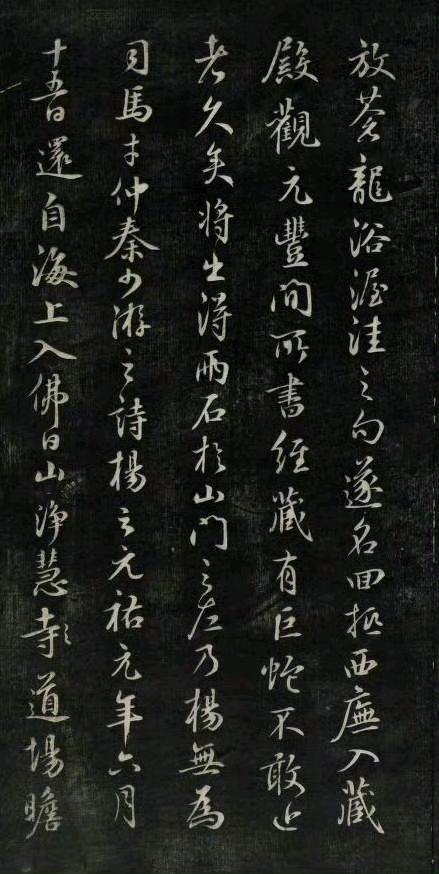 放蒼龍浴渥洼之句遂名曰振西廡入藏
殿觀元豐間所書經藏有巨蛇不敢近
者久矣將出得兩石於山門之左乃楊無為
司馬才仲秦少游之詩楊之元祐元年六月
十五日還自海上入佛日山淨慧寺道場瞻